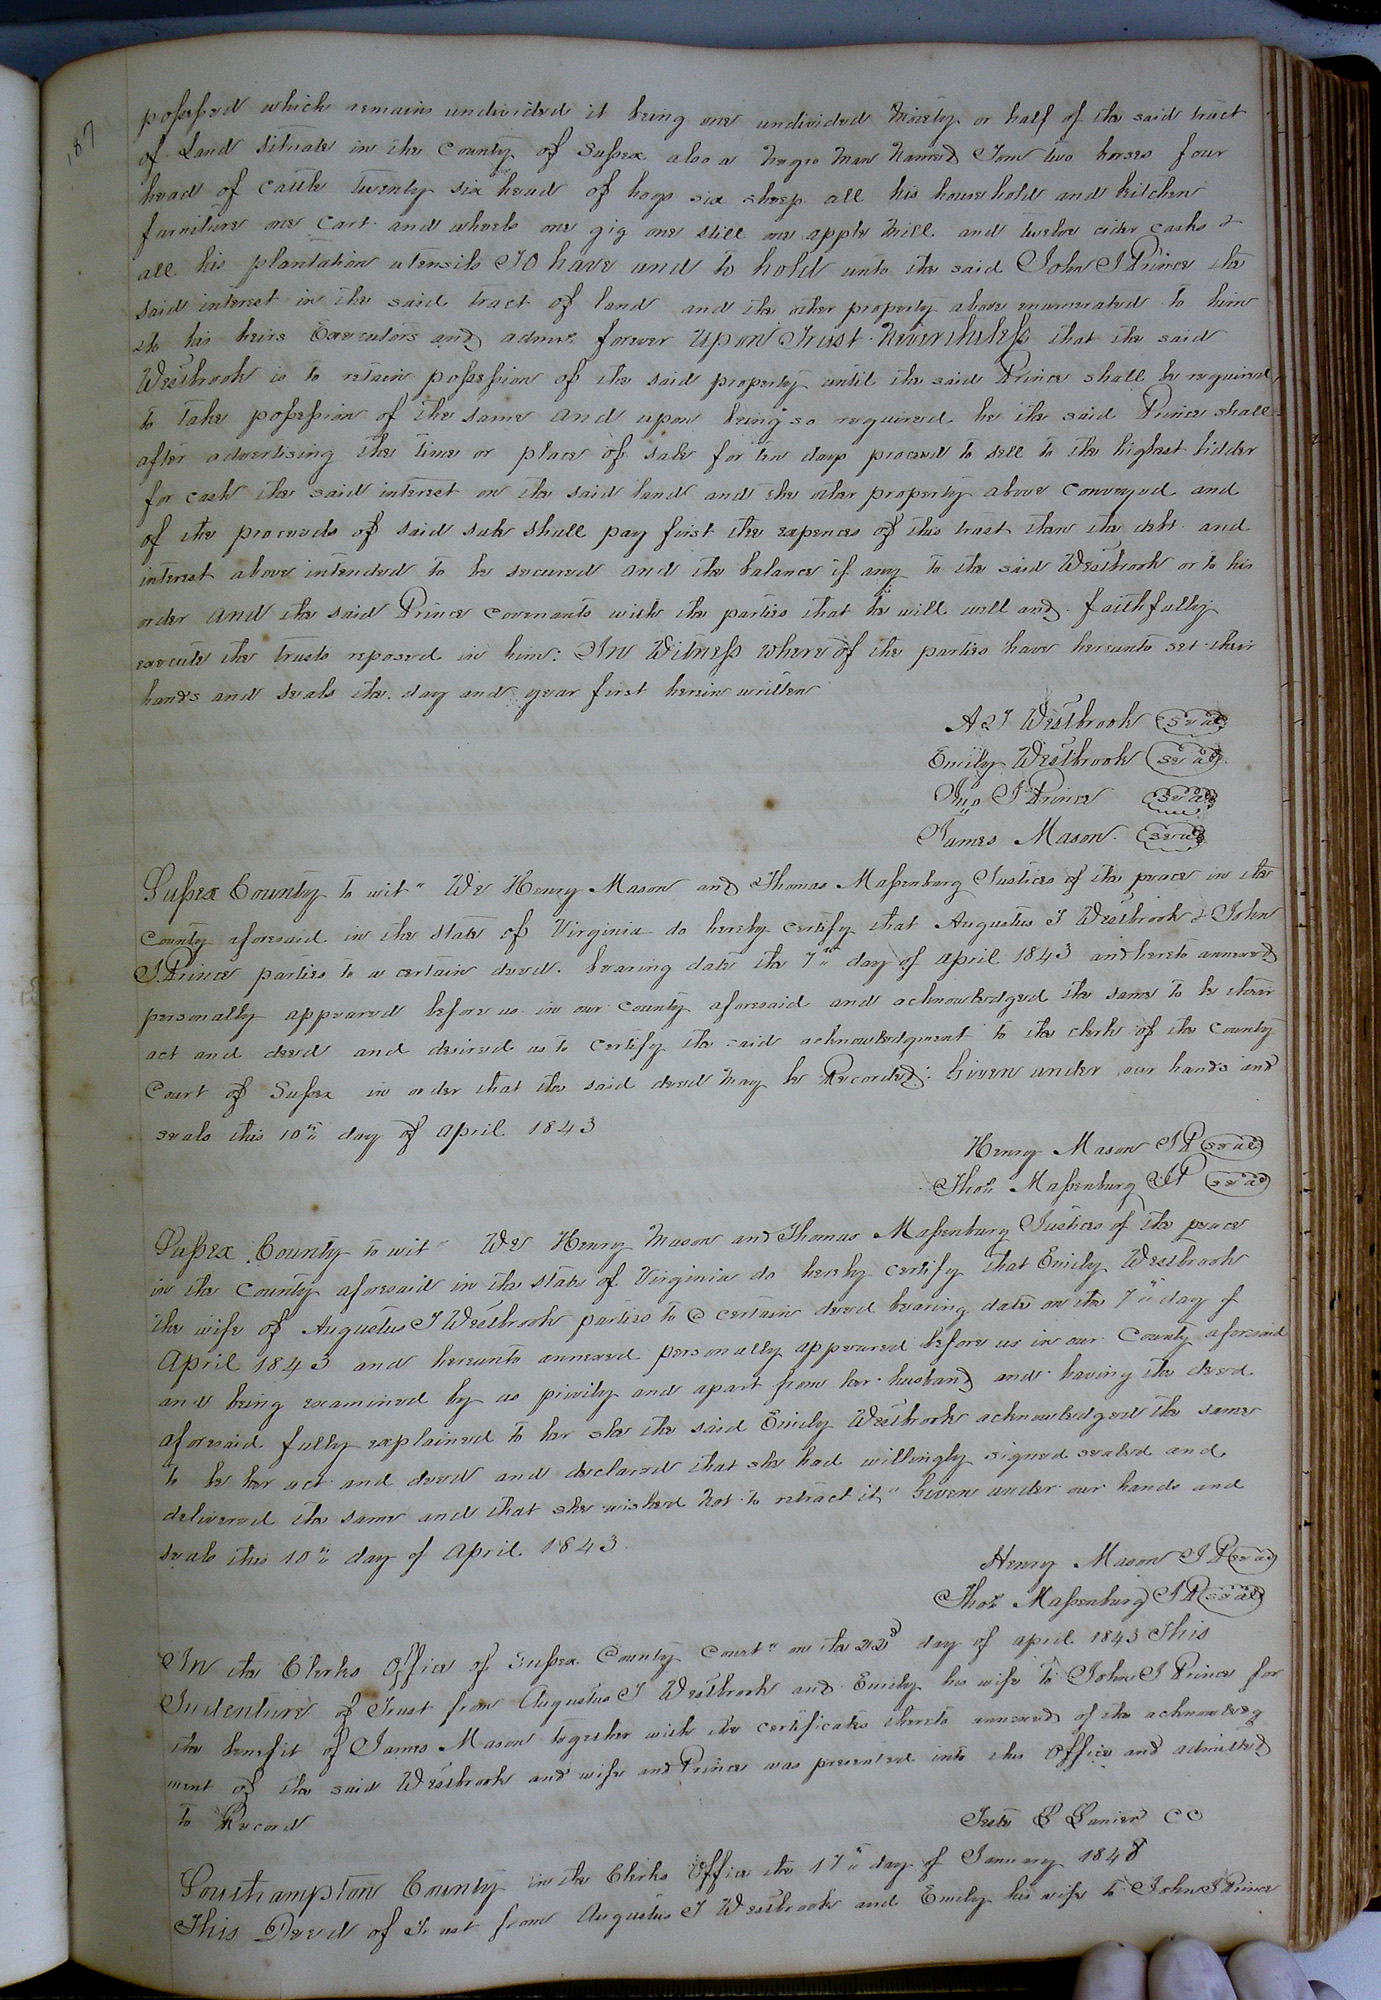 187
possessed which remains undivided it being one undivided Moiety or half of the said tract
of Land situate in the County of Sussex also a Negro Man Named Tom two horses four
head of cattle twenty six head of hogs six sheep all his household and kitchen
furniture one Cart and wheels one gig one still one apple Mill and twelve cider casks &
all his plantation utensils TO have and to hold unto the said John J Prince the
said interest in the said tract of land and the other property above enumerated to him
& to his heirs Executors and admrs. forever Upon Trust Nevertheless that the said
Westbrook is to retain possession of the said property until the said Prince shall be required
to take possession of the same and upon being so required he the said Prince shall
after advertising the time or place of sale for ten days proceed to sell to the highest bidder
for cash the said interest on the said land and the other property above Conveyed and
of the proceeds of said sale shall pay first the expences of this trust then the debt and
interest above intended to be secured and the balance if any to the said Westbrook or to his
order and the said Prince Covenants with the parties that he will well and faithfully
execute the trusts reposed in him: In Witness where of the parties have hereunto set their
hands and seals the day and year first herein written
A J Westbrook seal
Emily Westbrook seal
Jno J Prince seal
James Mason seal
Sussex County to wit" We Henry Mason and Thomas Massenburg Justices of the peace in the
County aforesaid in the state of Virginia do hereby certify that Augustus J Westbrook & John
J. Prince parties to a certain deed bearing date the 7th day of April 1843 and hereto annexed
personally appeared before us in our County aforesaid and acknowledged the same to be their
act and deed and desired us to certify the said acknowledgment to the clerk of the County
Court of Sussex in order that the said deed May be Recorded: Given under our hands and
seals this 10th day of April 1843
Henry Mason JP seal
Thos Massenburg JP seal
Sussex County to wit We Henry Mason and Thomas Massenburg Justices of the peace
in the County aforesaid in the state of Virginia do hereby certify that Emily Westbrook
the wife of Augustus J Westbrook parties to a certain deed bearing date on the 7th day of
April 1843 and hereunto annexed personally appeared before us in our County aforesaid
and being examined by us privily and apart from her husband and having the deed
aforesaid fully explained to her she the said Emily Westbrook acknowledged the same
to be her act and deed and declared that she had willingly signed sealed and
delivered the same and that she wished Not to retract it" Given under our hands and
seals this 10th day of April 1843
Henry Mason JP seal
Thos Massenburg JP seal
In the Clerks Office of Sussex County Court" on the 22d day of april 1843 This
Indenture of Trust from Augustus J Westbrook and Emily his wife to John J Prince for
the benefit of James Mason together with the certificates thereto annexed of the acknowledg
ment of the said Westbrook and wife and Prince was presented into this Office and admitted
to Record
Teste Lanier CC
Southampton County in the Clerks Office the 17th day of January 1848
This Deed of Trust from Augustus J Westbrook and Emily his wife to John J Prince